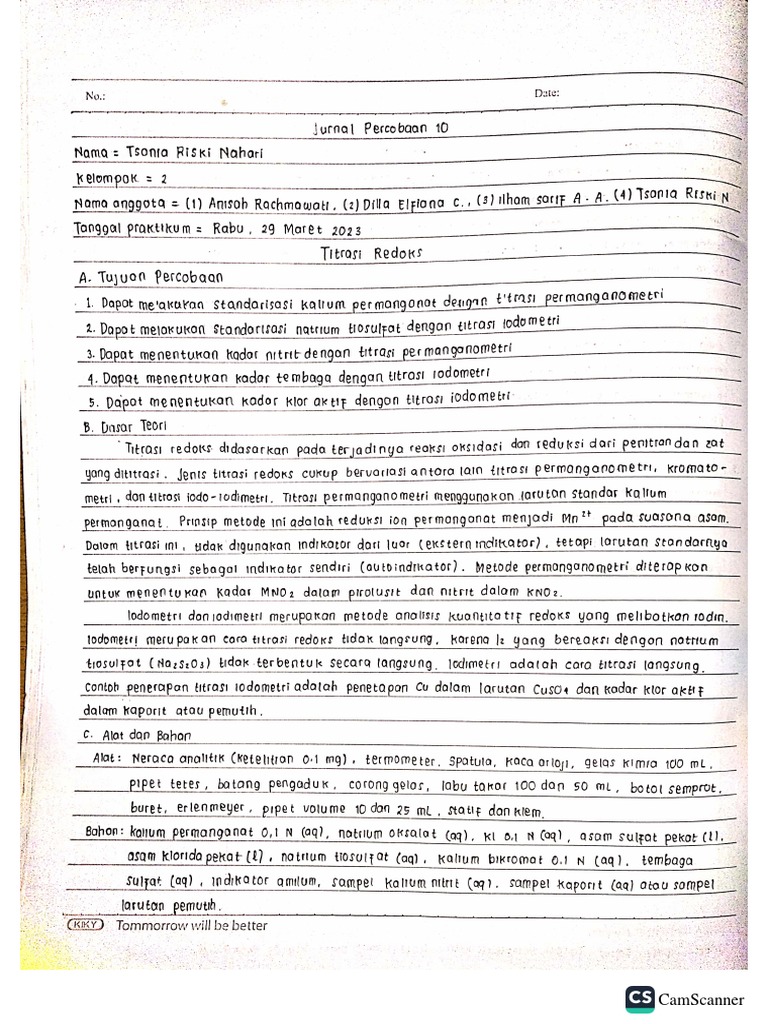 No.:
Date:
Jurnal Percobaan 10
Nama = Tsania Riski Nahari
Kelompok = 2
Nama anggota = (1) Anisah Rachmawati, (2) Dilla Elfiana C., (3) Ilham Sarif A. A. (4) Tsania Riski N
Tanggal praktikum = Rabu, 29 Maret 2023
Titrasi Redoks
A. Tujuan Percobaan
1. Dapat melakukan standarisasi kalium permanganat dengan titrasi permanganometri
2. Dapat melakukan standarisasi natrium tiosulfat dengan titrasi Iodometri
3. Dapat menentukan kadar nitrit dengan titrasi permanganometri
4. Dapat menentukan kadar tembaga dengan titrasi Iodometri
5. Dapat menentukan kadar klor aktif dengan titrasi iodometri
B. Dasar Teori
Titrasi redoks didasarkan pada terjadinya reaksi oksidasi dan reduksi dari penitran dan zat
yang dititrasi. Jenis titrasi redoks cukup bervariasi antara lain titrasi permanganometri, kromato-
metri, dan titrasi iodo-iodimetri. Titrasi permanganometri menggunakan larutan standar kalium
permanganat. Prinsip metode ini adalah reduksi ion permanganat menjadi Mn²⁺ pada suasana asam.
Dalam titrasi ini, tidak digunakan indikator dari luar (ekstern indikator), tetapi larutan standarnya
telah berfungsi sebagai indikator sendiri (autoindikator). Metode permanganometri diterapkan
untuk menentukan kadar MNO₂ dalam pirolusit dan nitrit dalam KNO₂.
Iodometri dan iodimetri merupakan metode analisis kuantitatif redoks yang melibatkan iodin.
Iodometri merupakan cara titrasi redoks tidak langsung, karena I₂ yang bereaksi dengan natrium
tiosulfat (Na₂S₂O₃) tidak terbentuk secara langsung. Iodimetri adalah cara titrasi langsung.
Contoh penerapan titrasi Iodometri adalah penetapan Cu dalam larutan CuSO₄ dan kadar klor aktif
dalam kaporit atau pemutih.
C. Alat dan Bahan
Alat: Neraca analitik (ketelitian 0.1 mg), termometer, spatula, kaca arloji, gelas kimia 100 mL,
pipet tetes, batang pengaduk, corong gelas, labu takar 100 dan 50 mL, botol semprot,
buret, erlenmeyer, pipet volume 10 dan 25 mL, statif dan klem.
Bahan: kalium permanganat 0,1 N (aq), natrium oksalat (aq), KI 0.1 N (aq), asam sulfat pekat (l),
asam klorida pekat (l), natrium tiosulfat (aq), kalium bikromat 0.1 N (aq), tembaga
sulfat (aq), indikator amilum, sampel kalium nitrit (aq), sampel kaporit (aq) atau sampel
larutan pemutih.
KIKY Tommorrow will be better
CS CamScanner